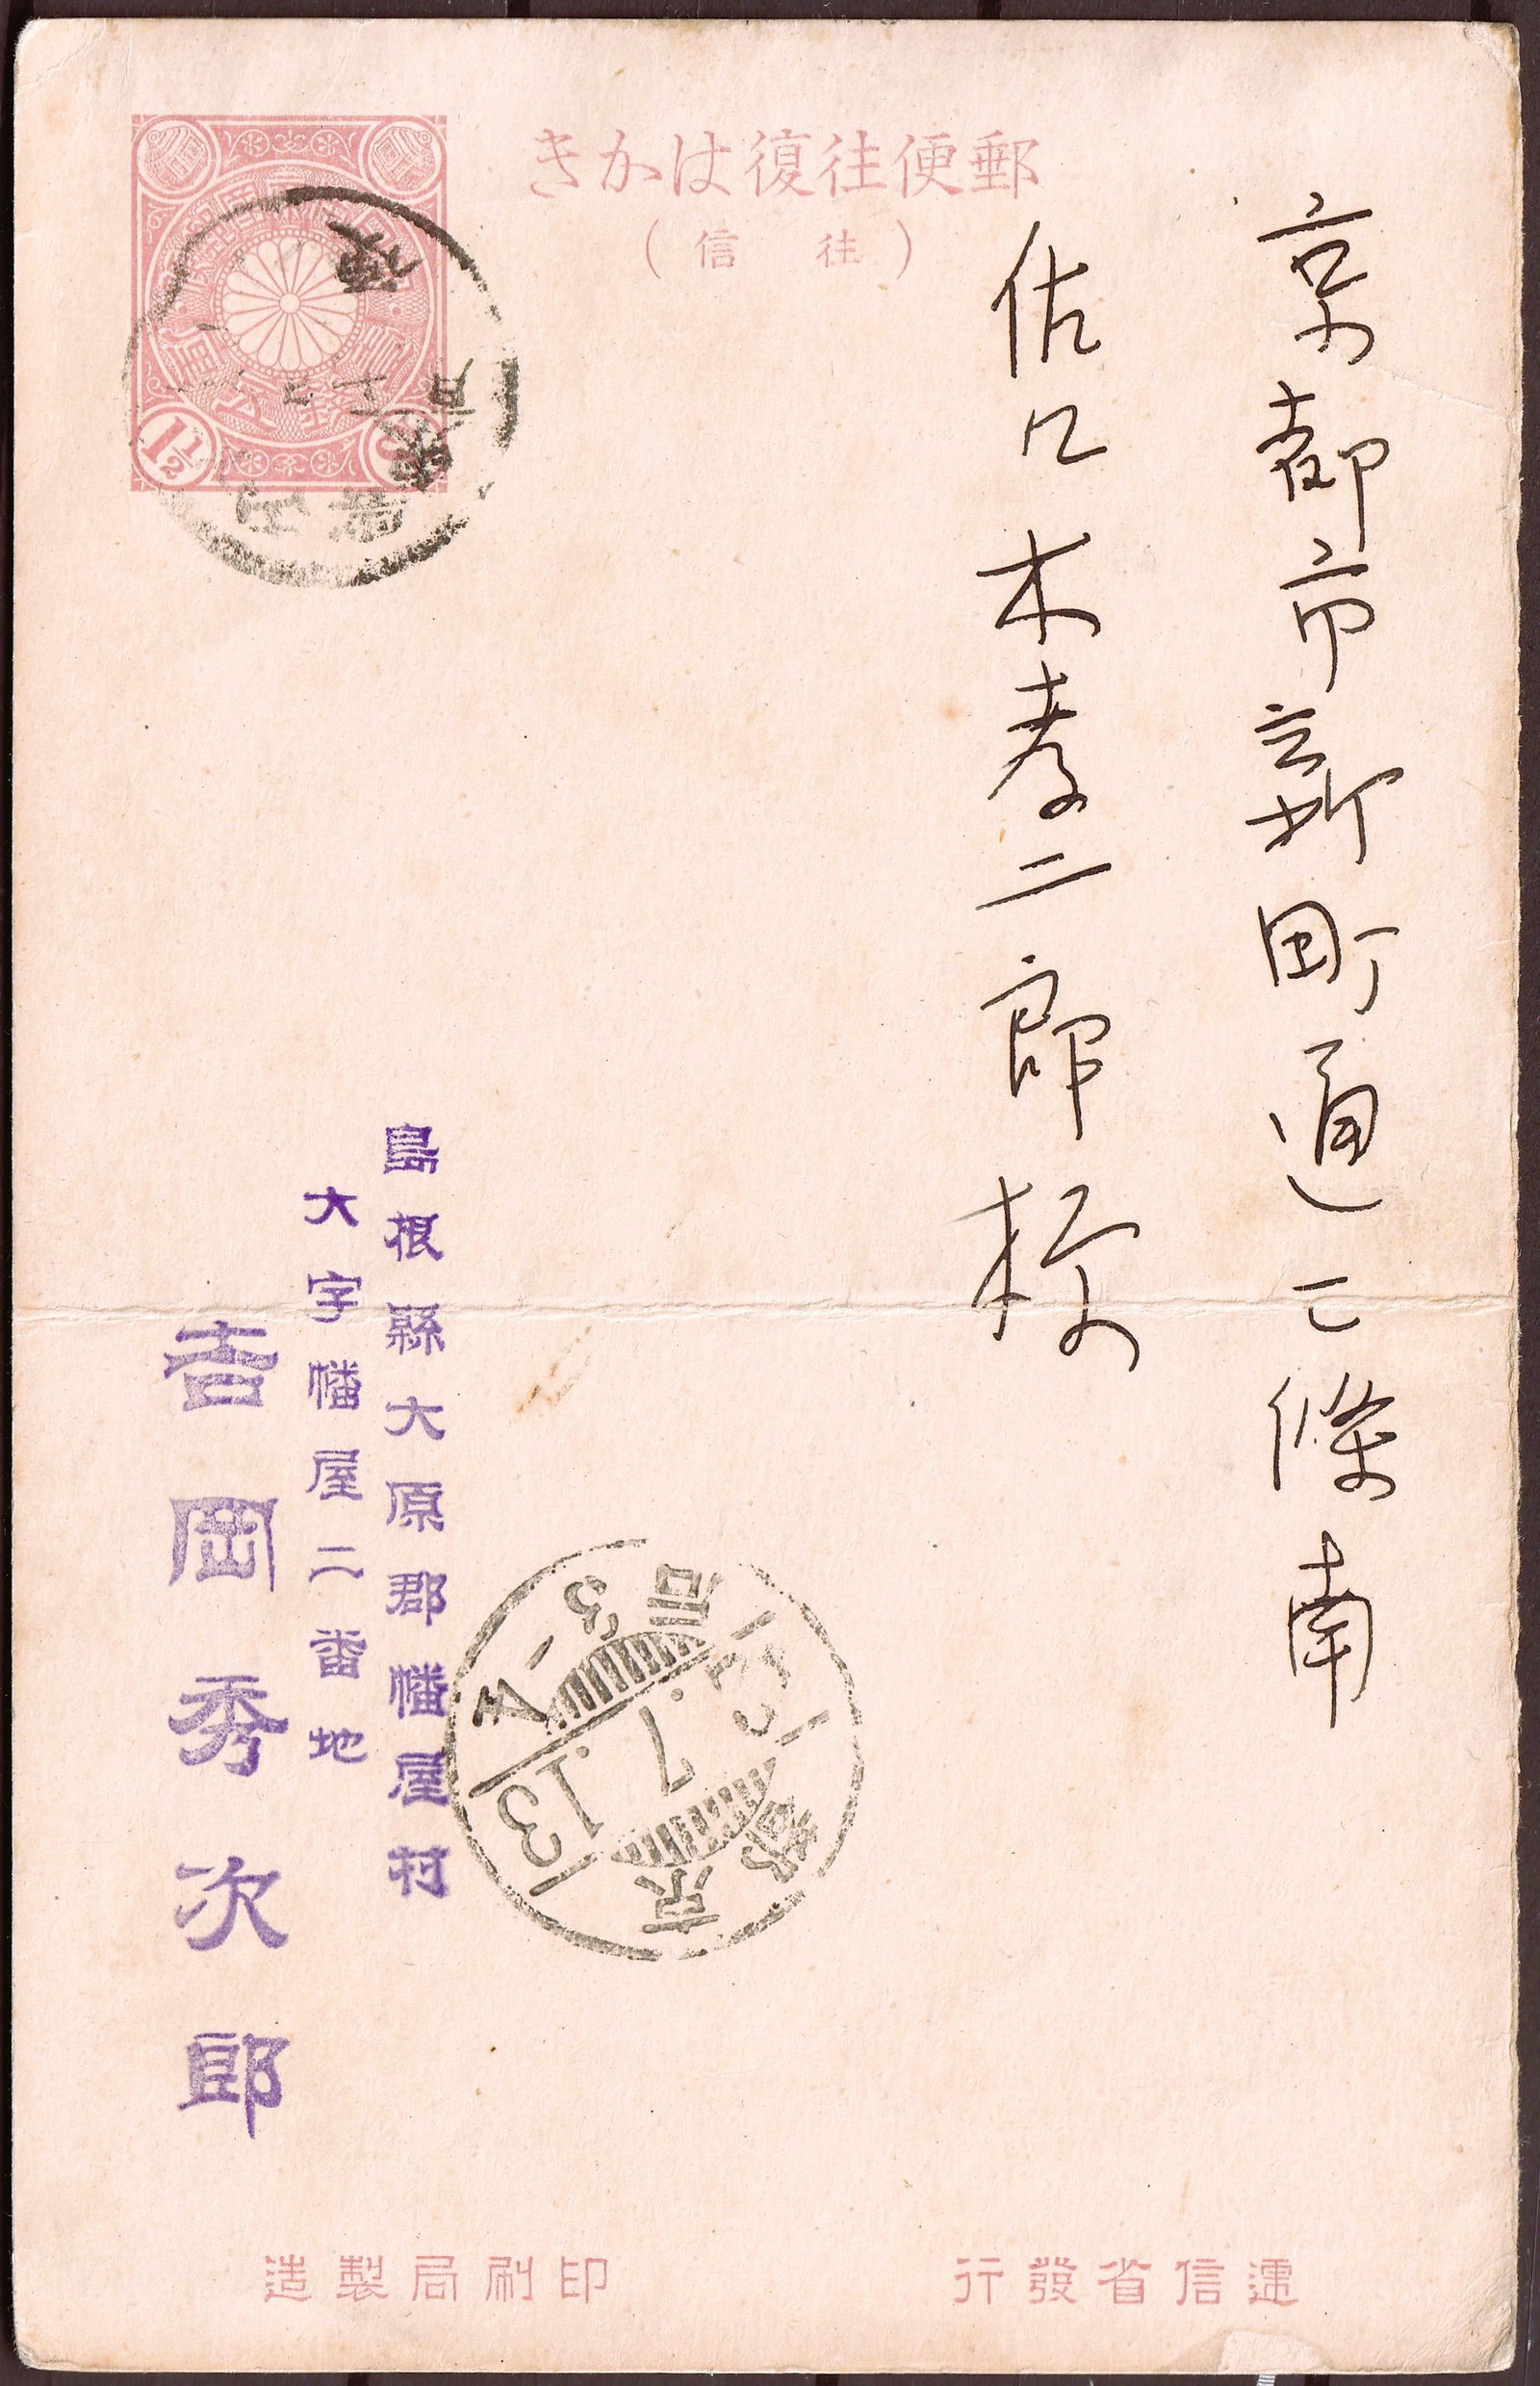 郵便往復はかき
(往信)
京都市新町通二條南
佐々木孝二郎様
島根縣大原郡幡屋村
大字幡屋二番地
吉岡秀次郎
1½
京都
7.13
遞信省發行
印刷局製造